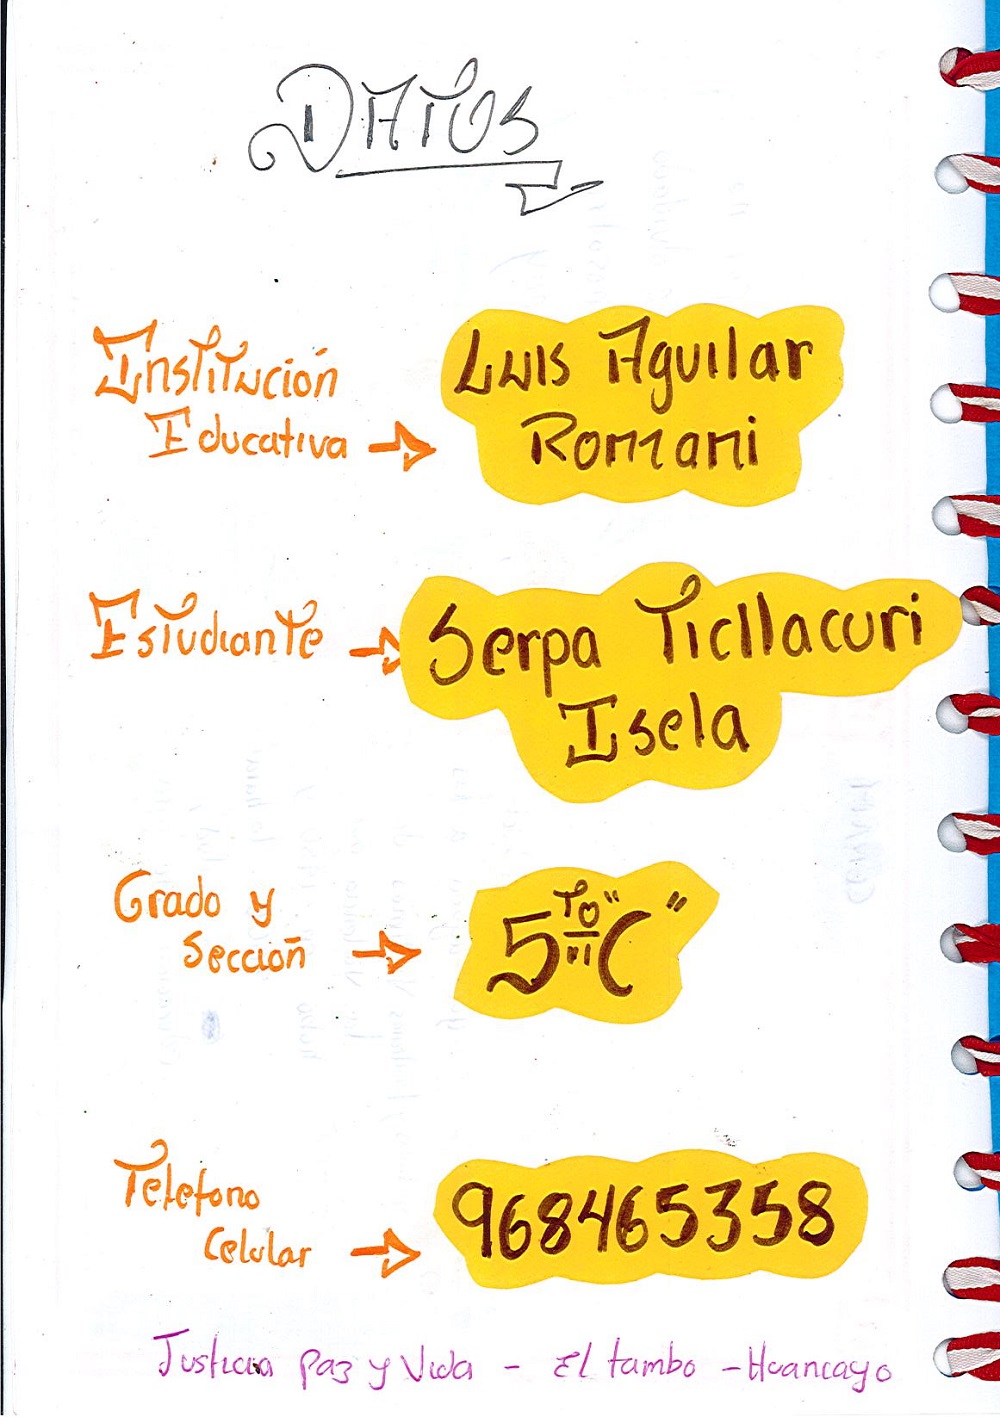 DATOS
Institución
Educativa
Luis Aguilar
Romani
Estudiante
Serpa Ticllacuri
Isela
Grado y
Sección
5to "C"
Telefono
Celular
968465358
Justicia Paz y Vida - El tambo - Huancayo